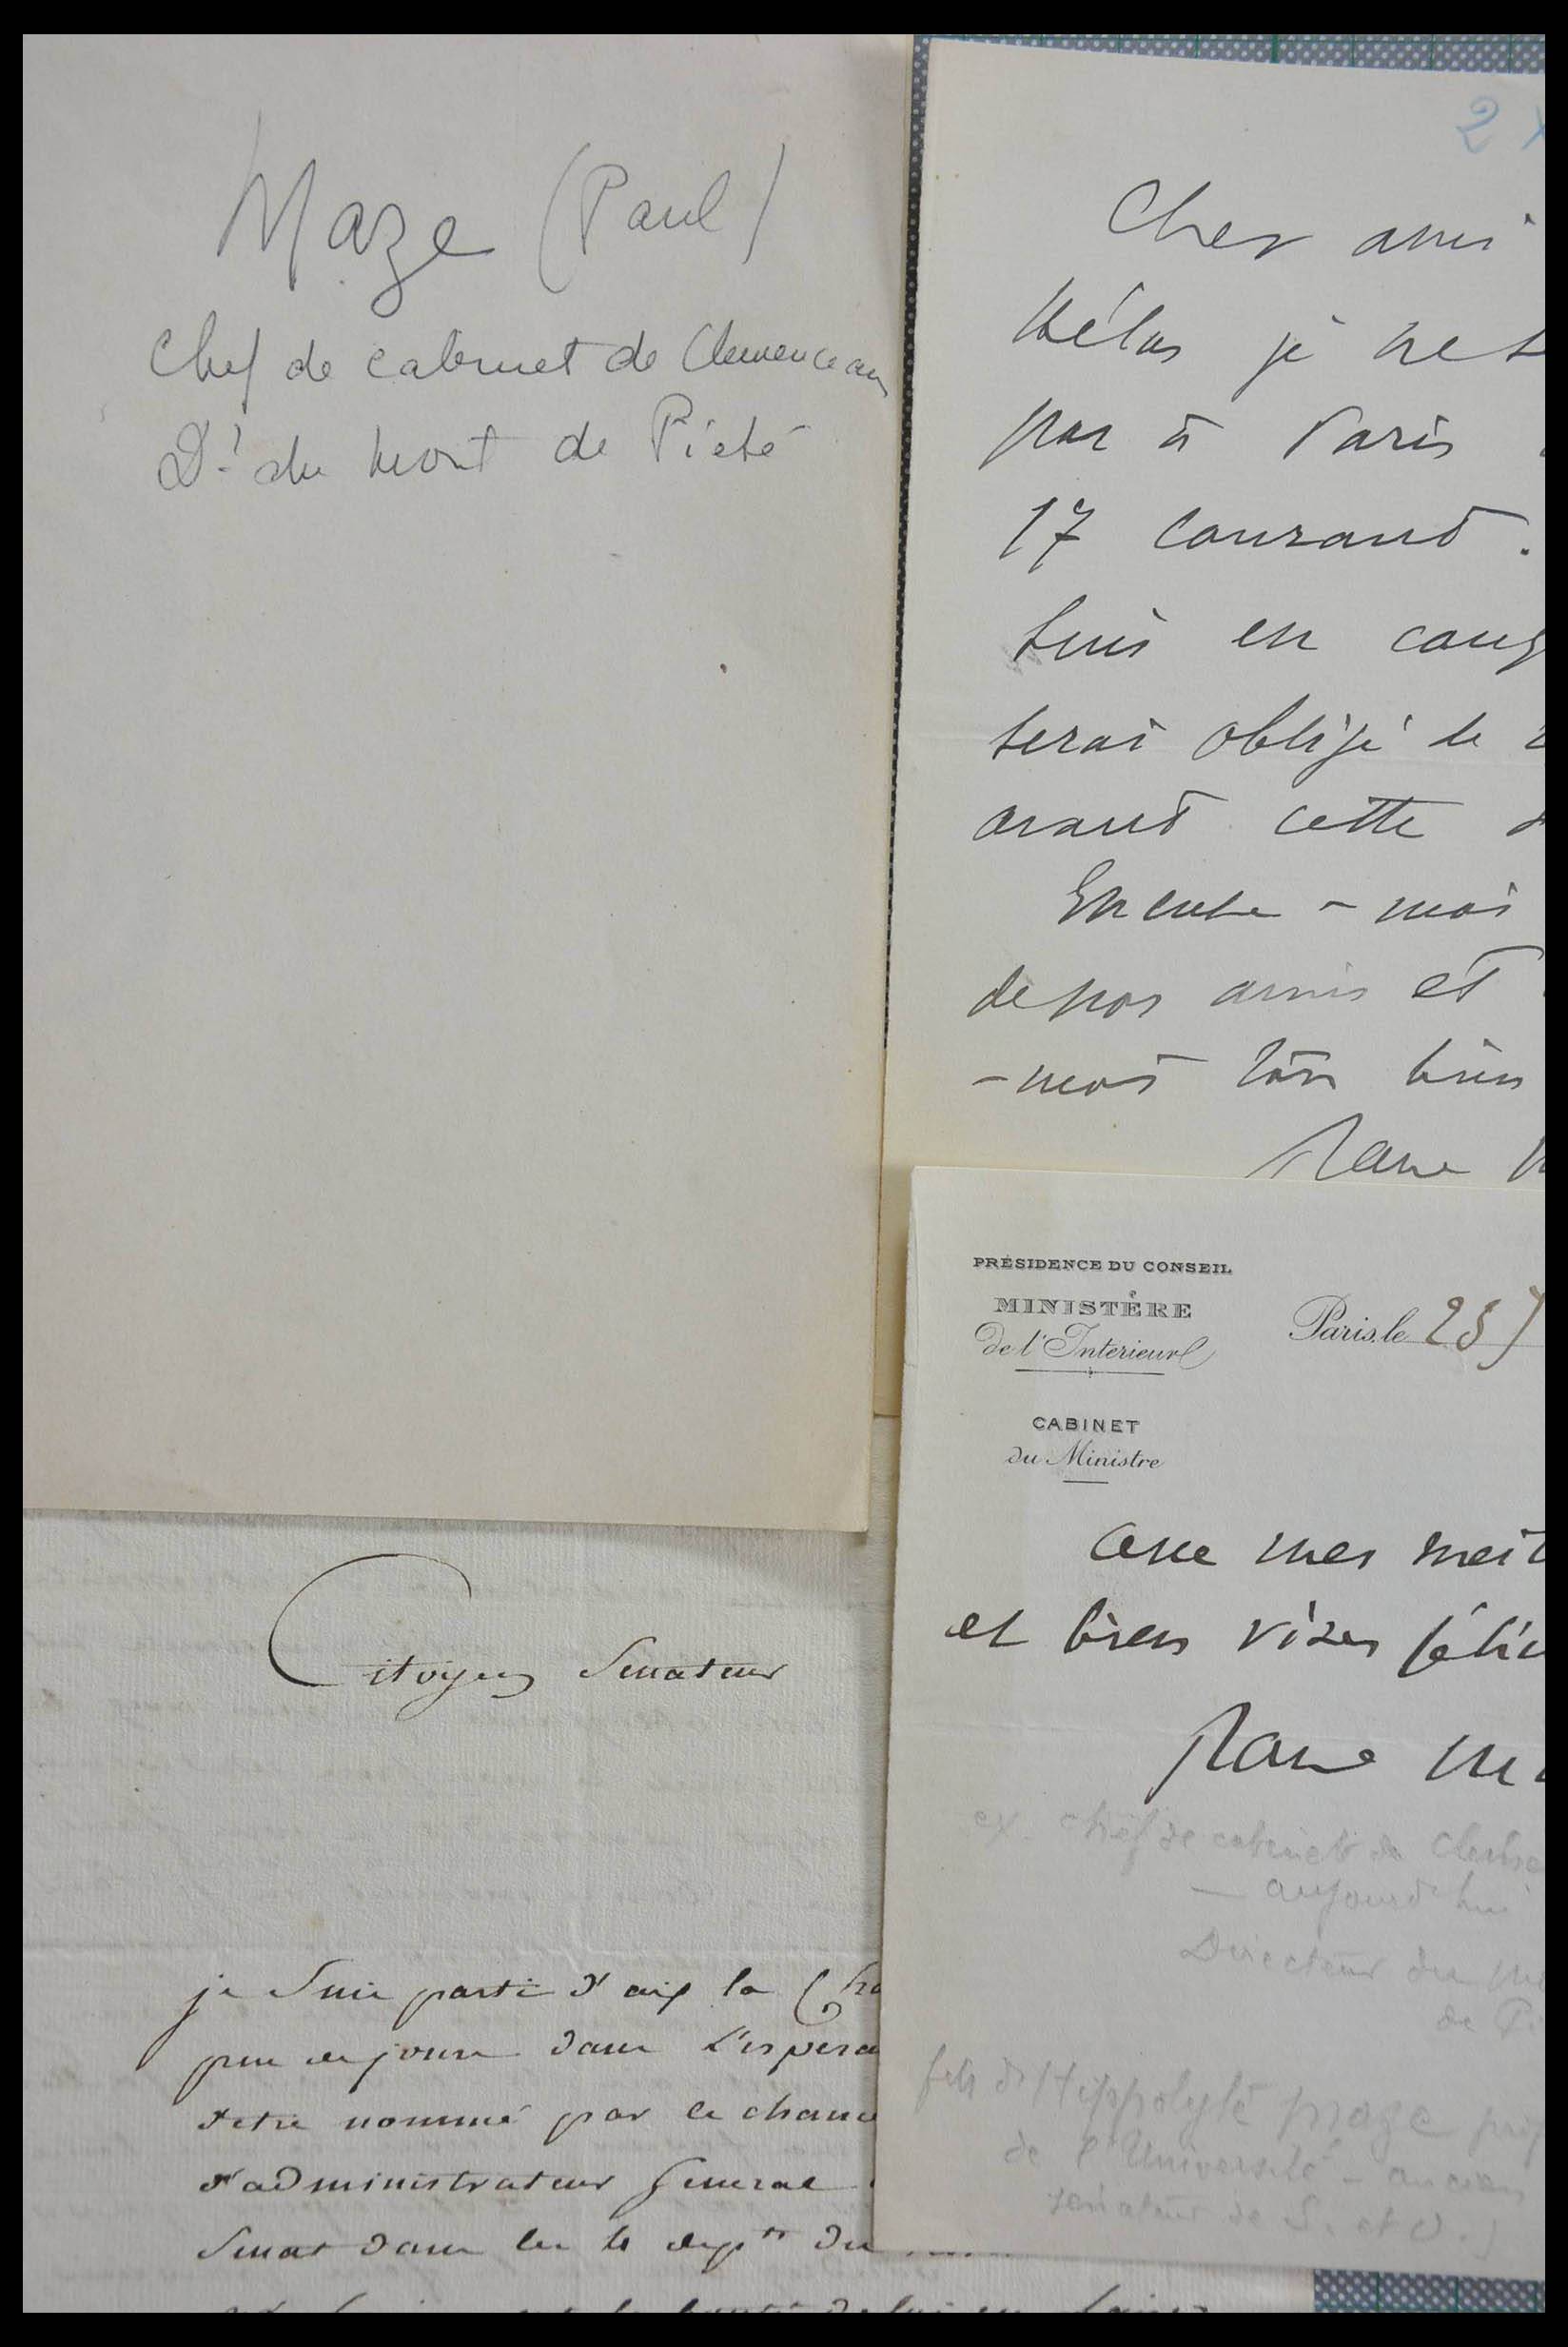 Maze (Paul)
Chef de cabinet de Clemenceau
Dr du Mont de Piété
2
Cher ami
Hélas je ne s
pas à Paris
17 courant.
suis en cong
serai obligé de
avant cette
Excuse-moi
de nos amis et
-moi bien
PRÉSIDENCE DU CONSEIL
MINISTÈRE
de l'Intérieur
CABINET
du Ministre
Paris, le 25
mes meil
et bien vives félici
ex. chef de cabinet de Cleme
— aujourd'hui
Directeur du M
de Pi
fils d'Hippolyte Maze prof
de l'Université - ancien
sénateur de S. et O.
Citoyen Senateur
je suis parti d'aix la Cha
peu de jours dans L'espera
d'etre nommé par le chanc
d'administrateur General
Senat dans les 4 depts du